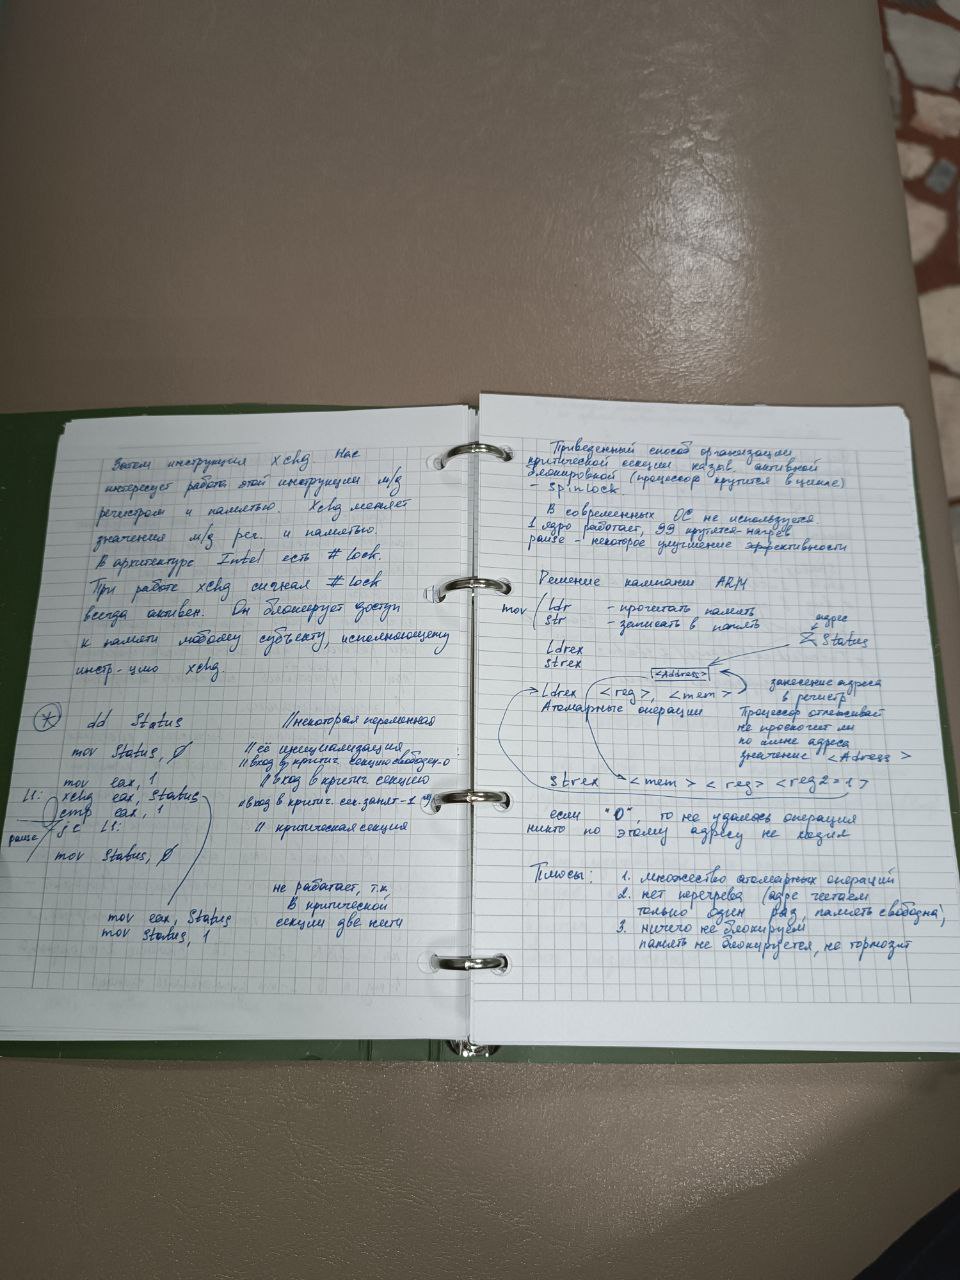 Затем инструкция xchg Нас
интересует работа этой инструкции м/д
регистром и памятью. Xchg меняет
значения м/д рег. и памятью.
В архитектуре Intel есть # lock.
При работе xchg сигнал # lock
всегда активен. Он блокирует доступ
к памяти любому субъекту, исполняющему
инстр-цию xchg.
* dd Status //некоторая переменная
mov Status, 0 // её инициализация
// вход в критич. секцию свободен-0
mov eax, 1 // вход в критич секцию
L1: xchg eax, Status // вход в критич. сек. занят-1
cmp eax, 1
pause je L1: // критическая секция
mov Status, 0
не работает, т.к.
В критической
mov eax, Status секции две нити
mov Status, 1
Приведенный способ организации
критической секции назыв. активной
блокировкой (процессор крутится в цикле)
- Spinlock.
В современных ОС не используется
1 ядро работает, 99 крутятся-нагрев
pause - некоторое улучшение эффективности
Решение кампании ARM
mov ldr - прочитать память
str - записать в память
адрес
Ldrex Status
strex
<Address>
занесение адреса
в регистр
Ldrex <reg>, <mem>
Атомарные операции Процессор отлеживает
не проскочит ли
по шине адреса
значение <Adress>
strex <mem> <reg> <reg2=1>
если "0", то не удалось операция
никто по этому адресу не ходил
Плюсы: 1. множество атомарных операций
2. нет перегрева (адрес читаем
только один раз, память свободна)
3. ничего не блокируем
память не блокируется, не тормозит